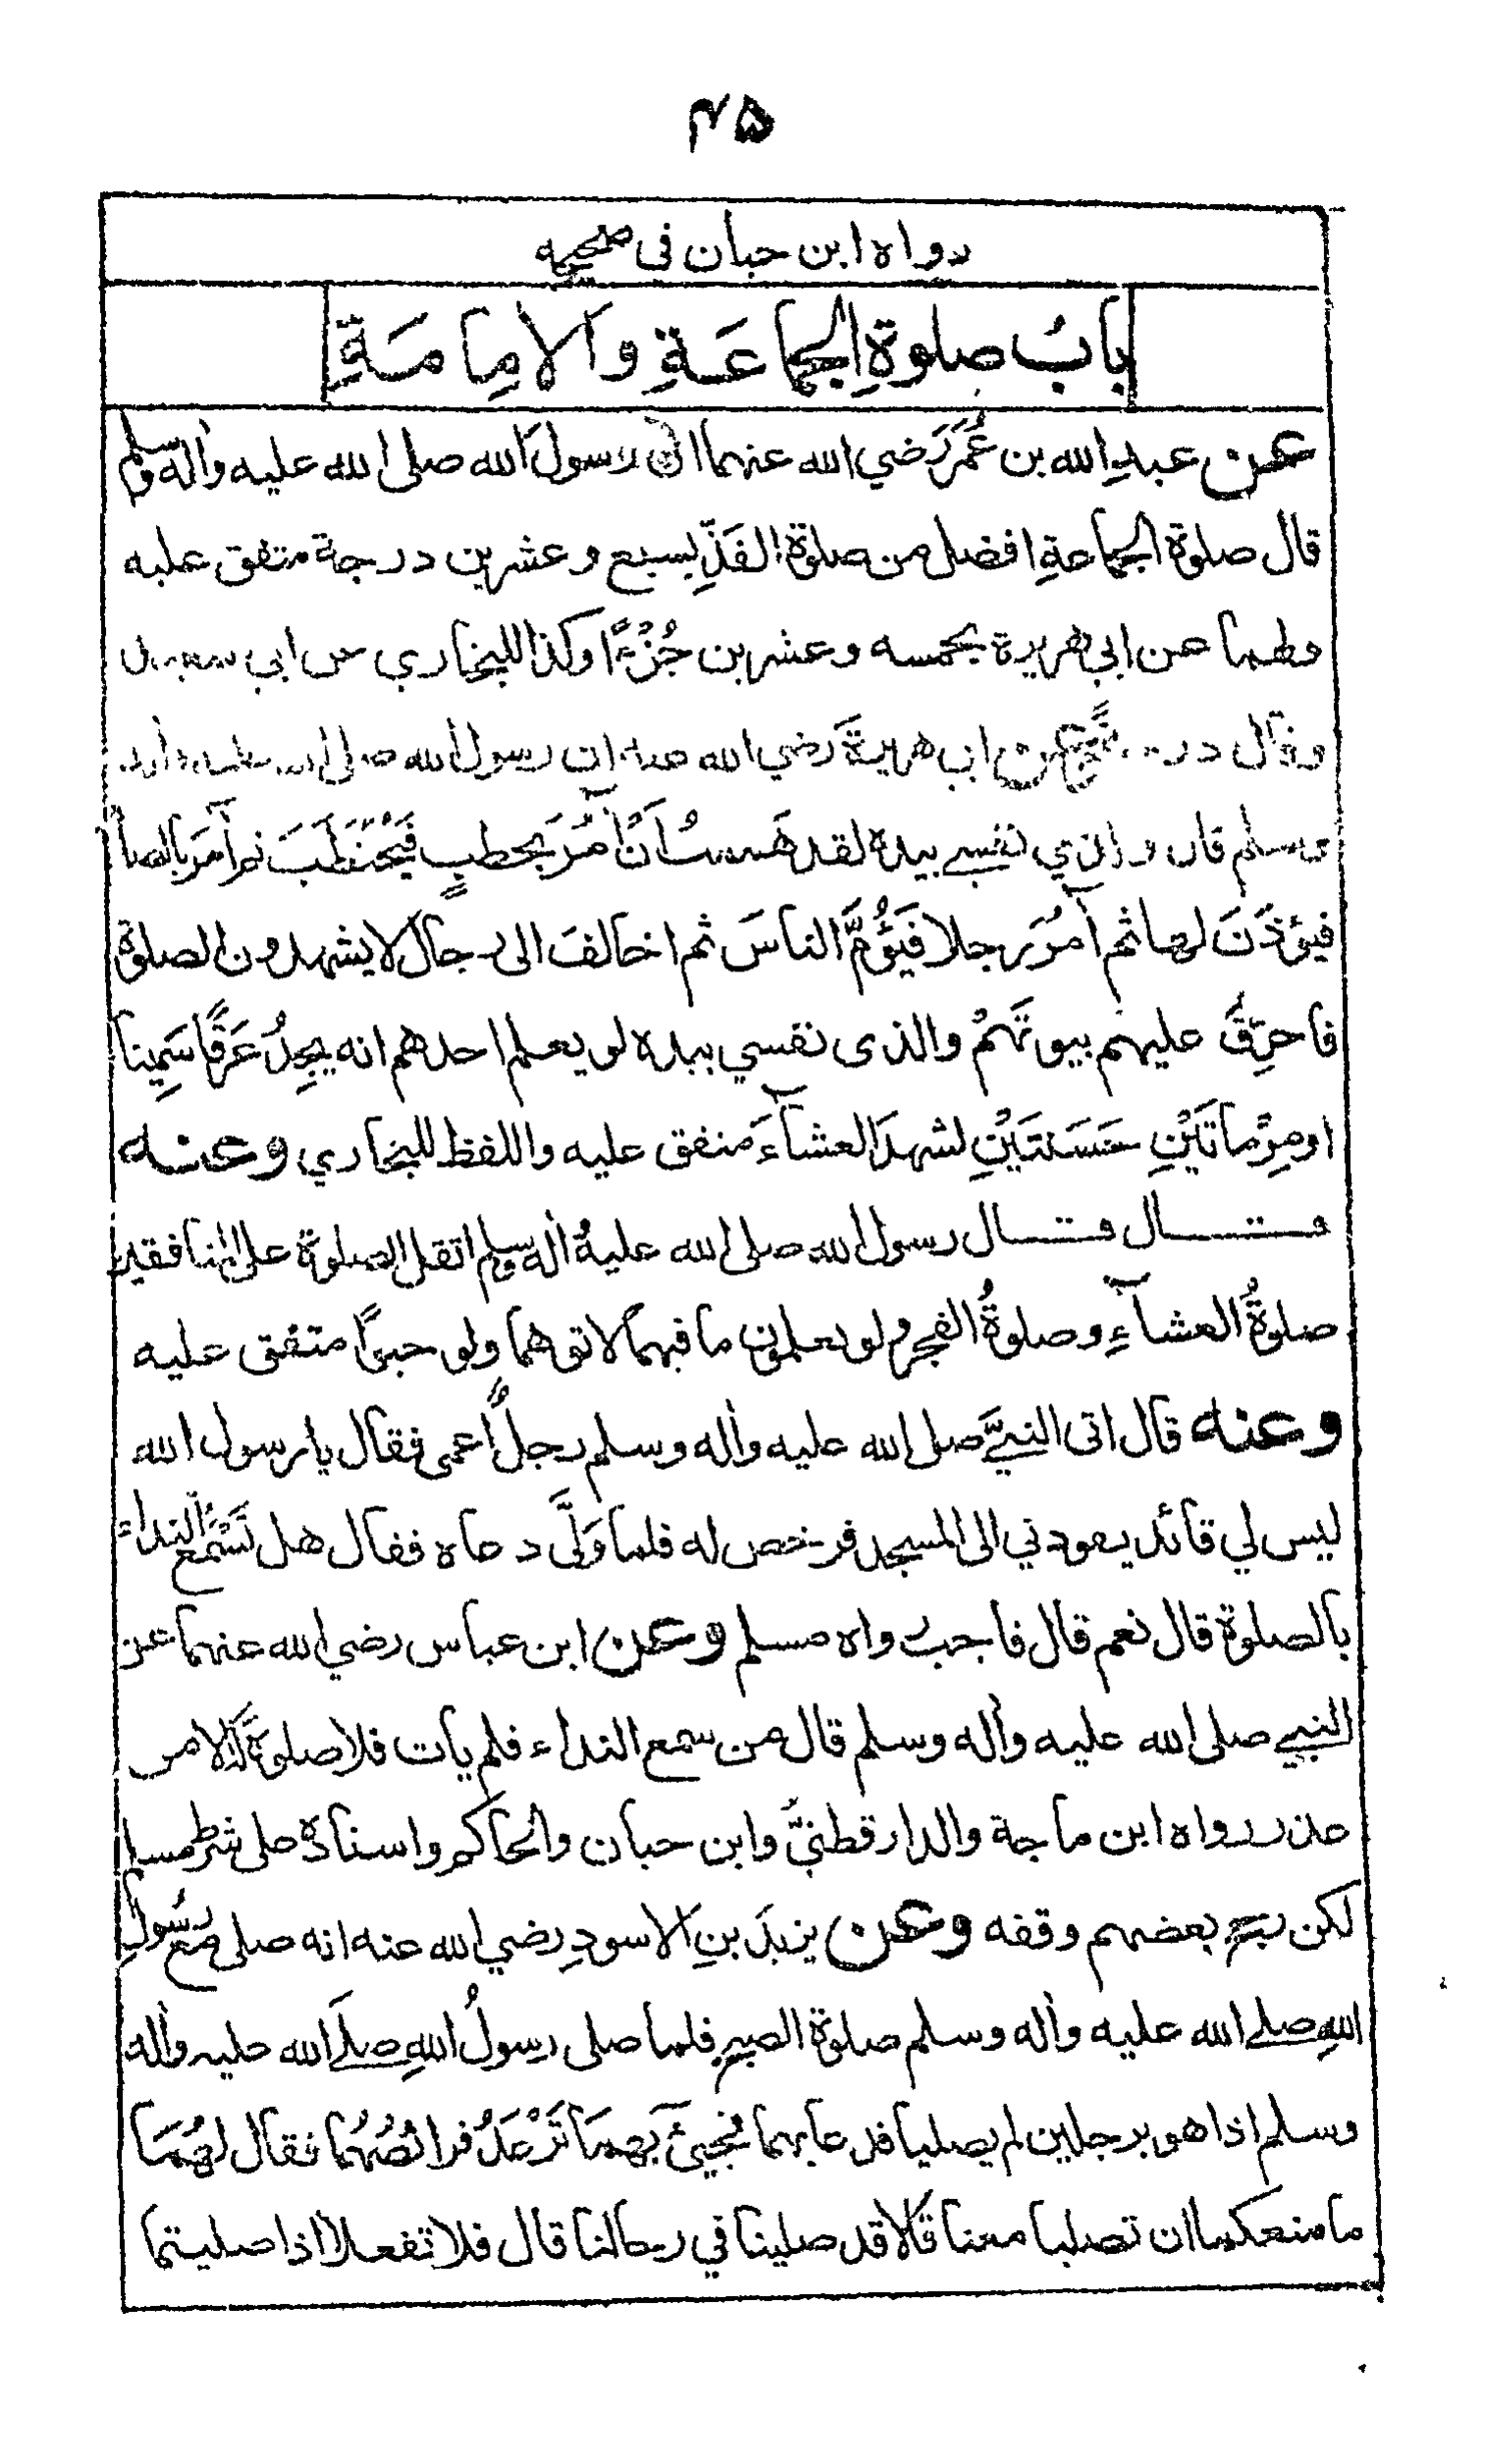 ۴۵
رواه ابن حبان في صحيحه
بابُ صلوةِ الجماعَةِ والامِامَةِ
عن عبدِ الله بن عُمَرَ رَضي الله عنهما ان رسولَ الله صلى الله عليه واٰله وسلم
قال صلوة الجماعةِ افضل من صلوة الفَذِّ بسبع وعشرين درجة متفق عليه
ولهما عن ابي هريرة بخمسه وعشرين جُزْءًا وكذا للبخاري عن ابي سعيد
وقال درجة وعن ابي هريرةَ رَضي الله عنه ان رسول الله صلى الله عليه واٰله
وسلم قال والذي نفسي بيده لقد هَممتُ اَنْ اٰمُرَ بحطبٍ فَيُحْتَطَبَ ثم اٰمُرَ بالصلوٰة
فيؤذَنَ لها ثم اٰمُرَ رجلا فَيَؤُمَّ الناسَ ثم اخالفَ الى رجال لا يشهدون الصلوة
فاحرِّقَ عليهم بيوتَهمْ والذى نفسي بيده لو يعلم احدهم انه يجِدُ عَرَقًا سَمِينا
او مِرْماتَيْنِ حَسَنتَيْنِ لشهدَ العشآءَ متفق عليه واللفظ للبخاري وعنه
قال قال رسول الله صلى الله عليه واٰله وسلم اثقل الصلوة على المنافقين
صلوةُ العشآءِ وصلوةُ الفجر ولو يعلمون ما فيهما لاتوهما ولو حبوًا متفق عليه
وعنه قال اتى النبيَّ صلى الله عليه واٰله وسلم رجلٌ اعمى فقال يا رسول الله
ليس لي قائد يقودني الى المسجد فرخص له فلما وَلّٰى دعاه فقال هل تَسْمَعُ النداء
بالصلوة قال نعم قال فاجب رواه مسلم وعن ابن عباس رضي الله عنهما عن
النبي صلى الله عليه واٰله وسلم قال من سمع النداء فلم يأت فلا صلوةَ له الا من
عذر رواه ابن ماجة والدار قطنيُّ وابن حبان والحاكم واسناده على شرط مسلم
لكن رجح بعضهم وقفه وعن يزيدَ بنِ الاسودِ رضي الله عنه انه صلى مع رسُولِ
اللهِ صلى الله عليه واٰله وسلم صلوة الصبح فلما صلى رسولُ اللهِ صلى الله عليه واٰله
وسلم اذا هو برجلين لم يصليا فدعا بهما فجيئ بهما تَرْعَدُ فرائصُهُما فقال لهُمَا
ما منعكما ان تصليا معنا قالا قد صلينا في رحالنا قال فلا تفعلا اذا صليتما